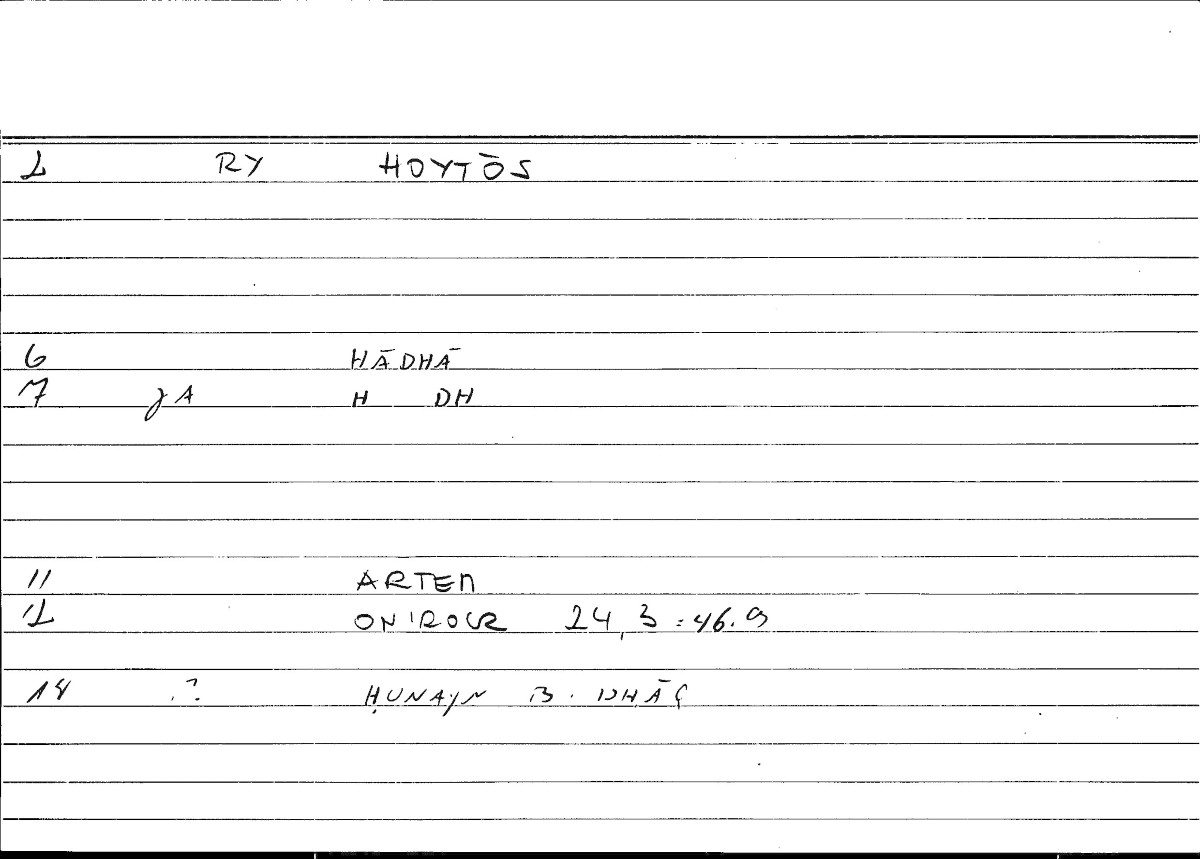 2 RY HOYTŌS
6 HĀDHĀ
7 jA H DH
11 ARTEM
12 ONIROCR 24,3 : 46.9
14 .?. ḤUNAYN B.